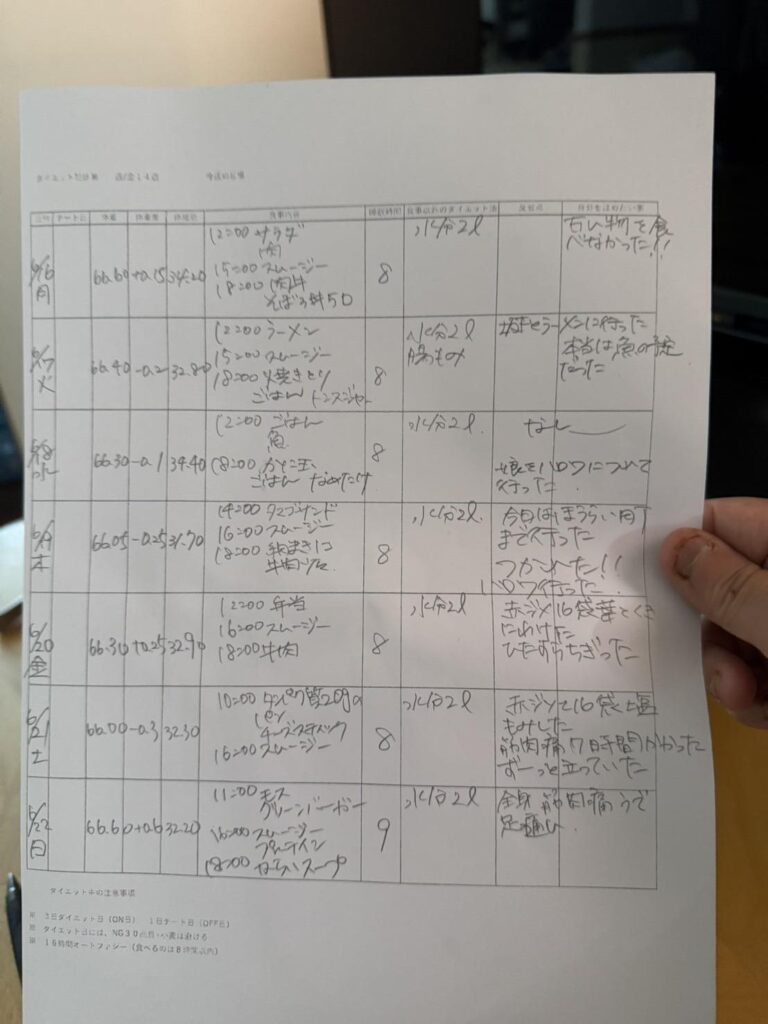 ダイエット記録
日付 チート日 体重 体重差 体脂肪 食事内容 睡眠時間 食事以外のダイエット法 反省点 自分を褒めたい事
6/16 月 66.60 +0.15 34.20
12:00 サラダ
肉
15:00 スムージー
18:00
8
水分2l
甘い物を食
べなかった!!
6/17 火 66.40 -0.2 32.80
12:00 ラーメン
15:00 スムージー
18:00 焼きとり
ごはん
8
水分2l
腸もみ
ラーメンに行った
本当は魚の予定
だった
6/18 水 66.30 -0.1 34.40
12:00 ごはん
魚
18:00 かに玉
ごはん なめたけ
8
水分2l.
なし
娘とハロワについて
行った
木 66.05 -0.25 31.70
14:00
16:00 スムージー
18:00
8
水分2l.
今日は
まで行った
つかれた!!
ハロワ行った.
6/20 金 66.30 +0.25 32.90
12:00 弁当
16:00 スムージー
18:00 牛肉
8
水分2l
赤ジソ16袋葉とくき
にわけた
ひたすらちぎった
6/21 土 66.00 -0.3 32.30
10:00 タンパク質20gの
パン
チーズスティック
16:00 スムージー
8
水分2l
赤ジソ16袋塩
もみした
筋肉痛7時間かかった
ずーっと立っていた
6/22 日 66.60 +0.6 32.20
11:00 モス
グリーンバーガー
16:00 スムージー
プロテイン
18:00 からいスープ
9
水分2l
全身筋肉痛うで
足痛い
ダイエット中の注意事項
※ 1日チート日(OFF日)
※ ダイエット日には、
※ 16時間オートファジー(食べるのは8時間以内)